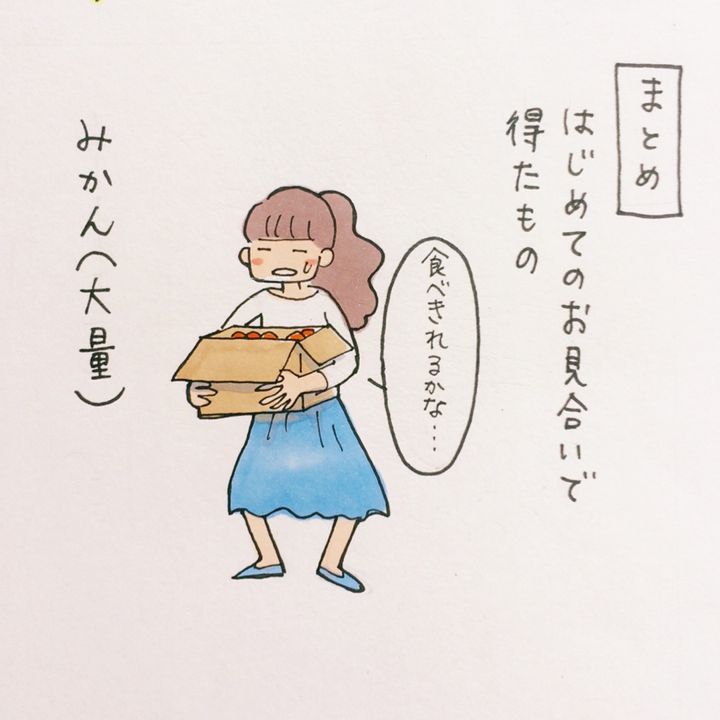 まとめ
はじめてのお見合いで
得たもの
食べきれるかな…
みかん(大量)